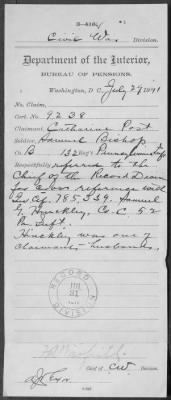 Civil War Division.
Department of the Interior,
BUREAU OF PENSIONS,
Washington, D. C., July 29, 1891
No. Claim,
Cert. No. 9238
Claimant Catharine Post
Soldier Samuel Bishop
Co. B 132 Reg't Pennsylvania
Respectfully referred to the
Chief of the Record Div
for cross reference with
Inv Ctf. 785,339. Samuel
G. Hinckley, Co. C 52
Pa. Inft.
Hinckley was one of
claimants husbands.
RECORD
JUL
31
DIVISION
Chief C.W. Division.